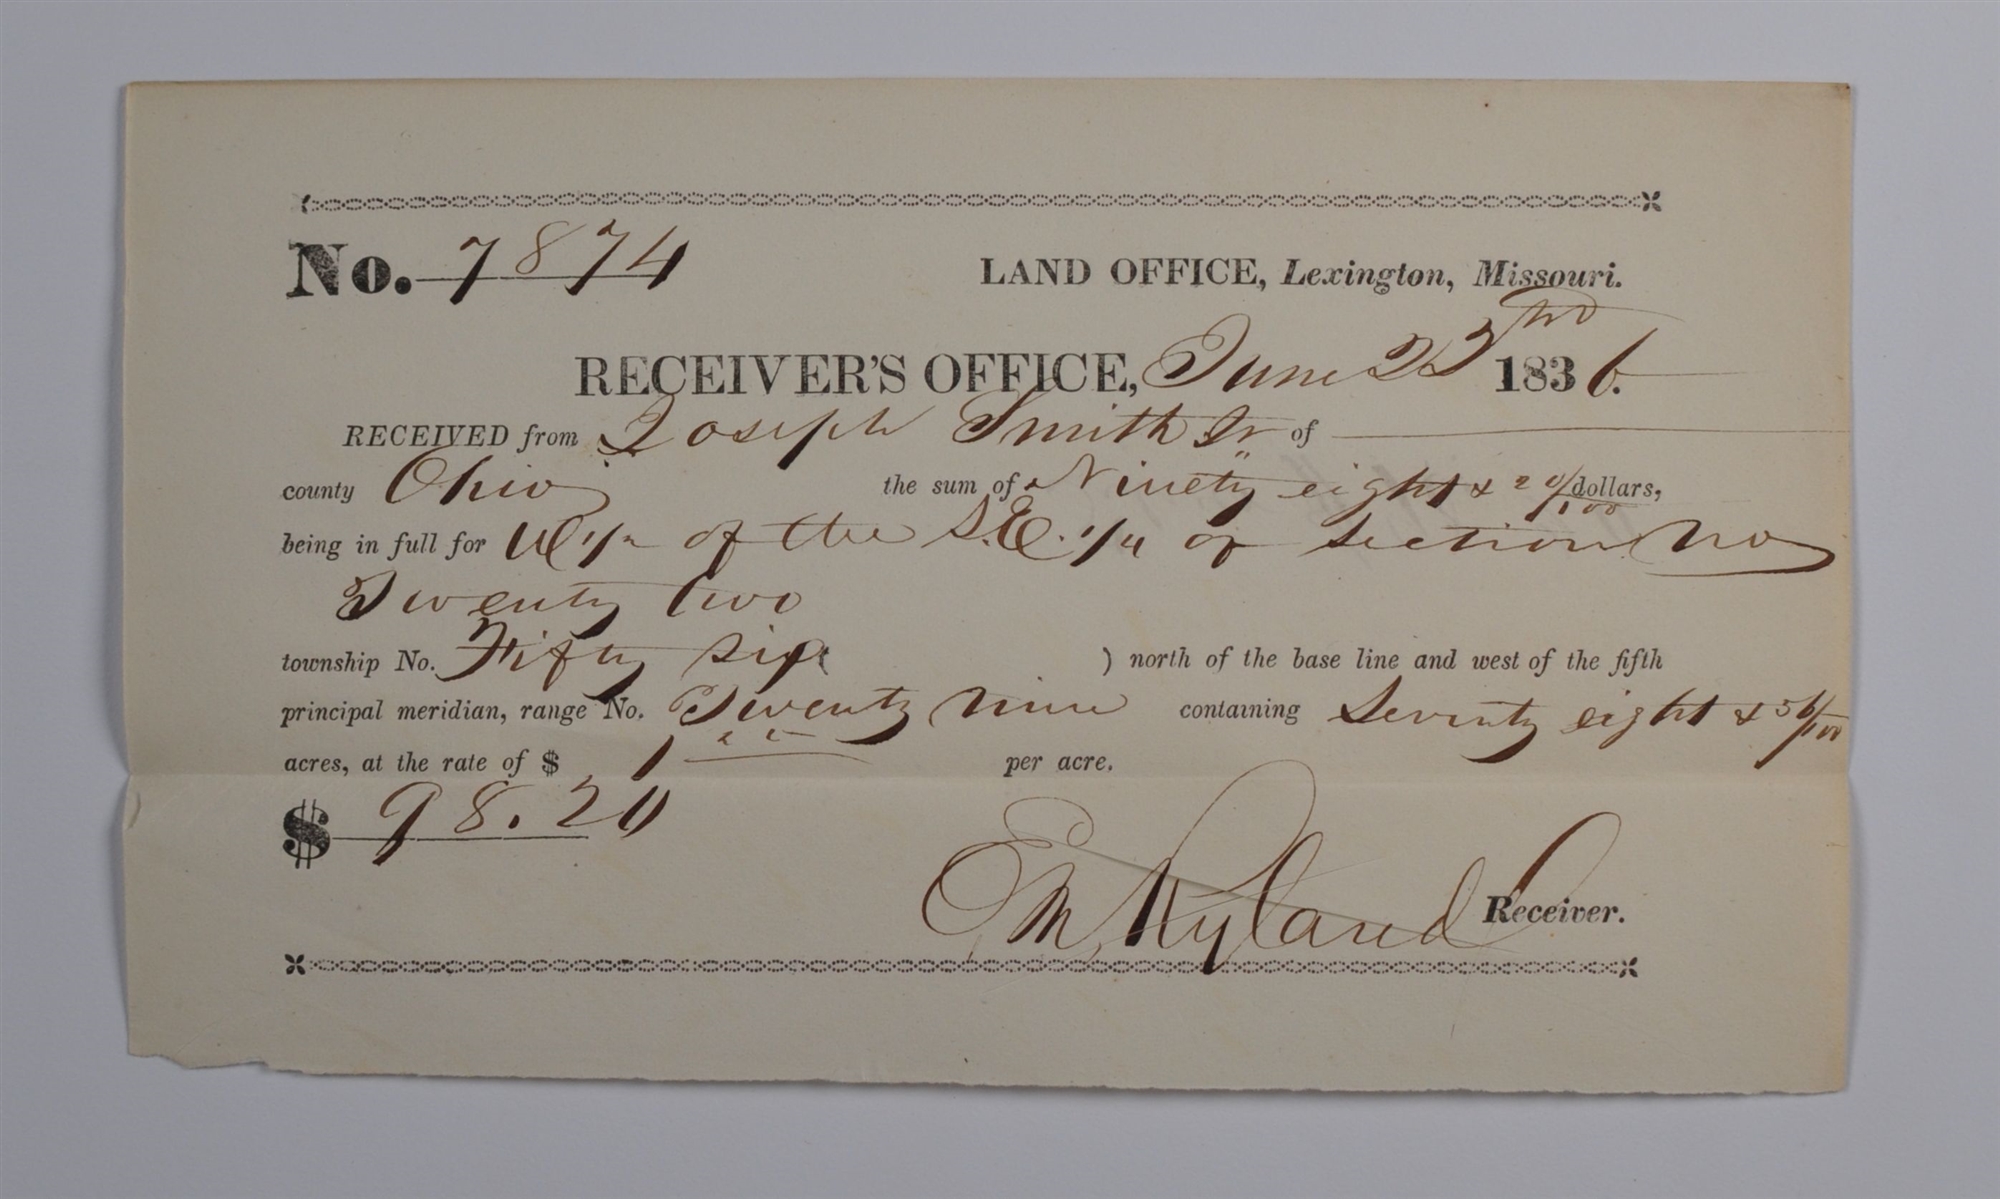 No. 7874 LAND OFFICE, Lexington, Missouri.
RECEIVER'S OFFICE, June 22nd 1836.
RECEIVED from Joseph Smith Jr of
county Ohio the sum of Ninety eight & 20/100 dollars,
being in full for W 1/2 of the S.E. 1/4 of Section No
Twenty two
township No. Fifty six ) north of the base line and west of the fifth
principal meridian, range No. Twenty nine containing Seventy eight & 56/100
acres, at the rate of $ 1 per acre.
$ 98.20
E M Ryland Receiver.